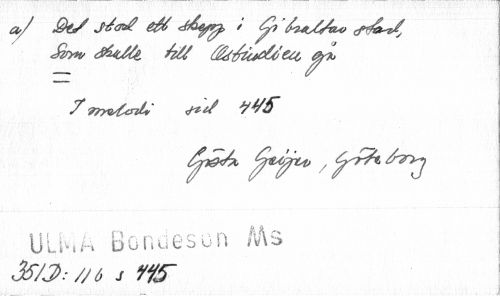 a) Det stod ett skepp i Gibraltar stad,
Som skulle till Ostindien gå
=
I melodi sid 445
Gösta Geijer, Göteborg
ULMA Bondeson Ms
351D: 116 s 445